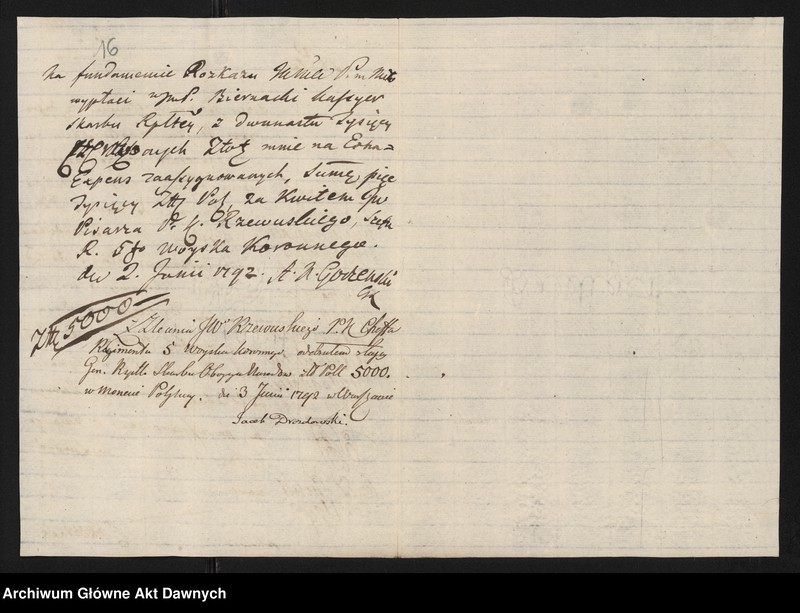 16
Na fundamencie Rozkazu
wypłaci JmP. Biernacki Kassyer
Skarbu Rpltey, z dwunastu Tysięcy
Złot mnie na Extra=
Expens zaassygnowanych, Summę pięć
Tysięcy Złł Pol, za Kwitem Jw
Pisarza P. K. Rzewuskiego, Szefa
R. 5go Woyska Koronnego.
du 2. Junii 1792. A. K. Gorzenski
Złł 5000
Z Zlecenia JWo Rzewuskiego P. K. Cheffa
Regimentu 5 Woyska Koronnego, odebrałem z Kassy
Gen. Skarbu Oboyga Narodow zł Poll 5000.
w Monecie Polskiey. die 3 Junii 1792 w Warszawie
Jacek Drozdowski.
Archiwum Główne Akt Dawnych